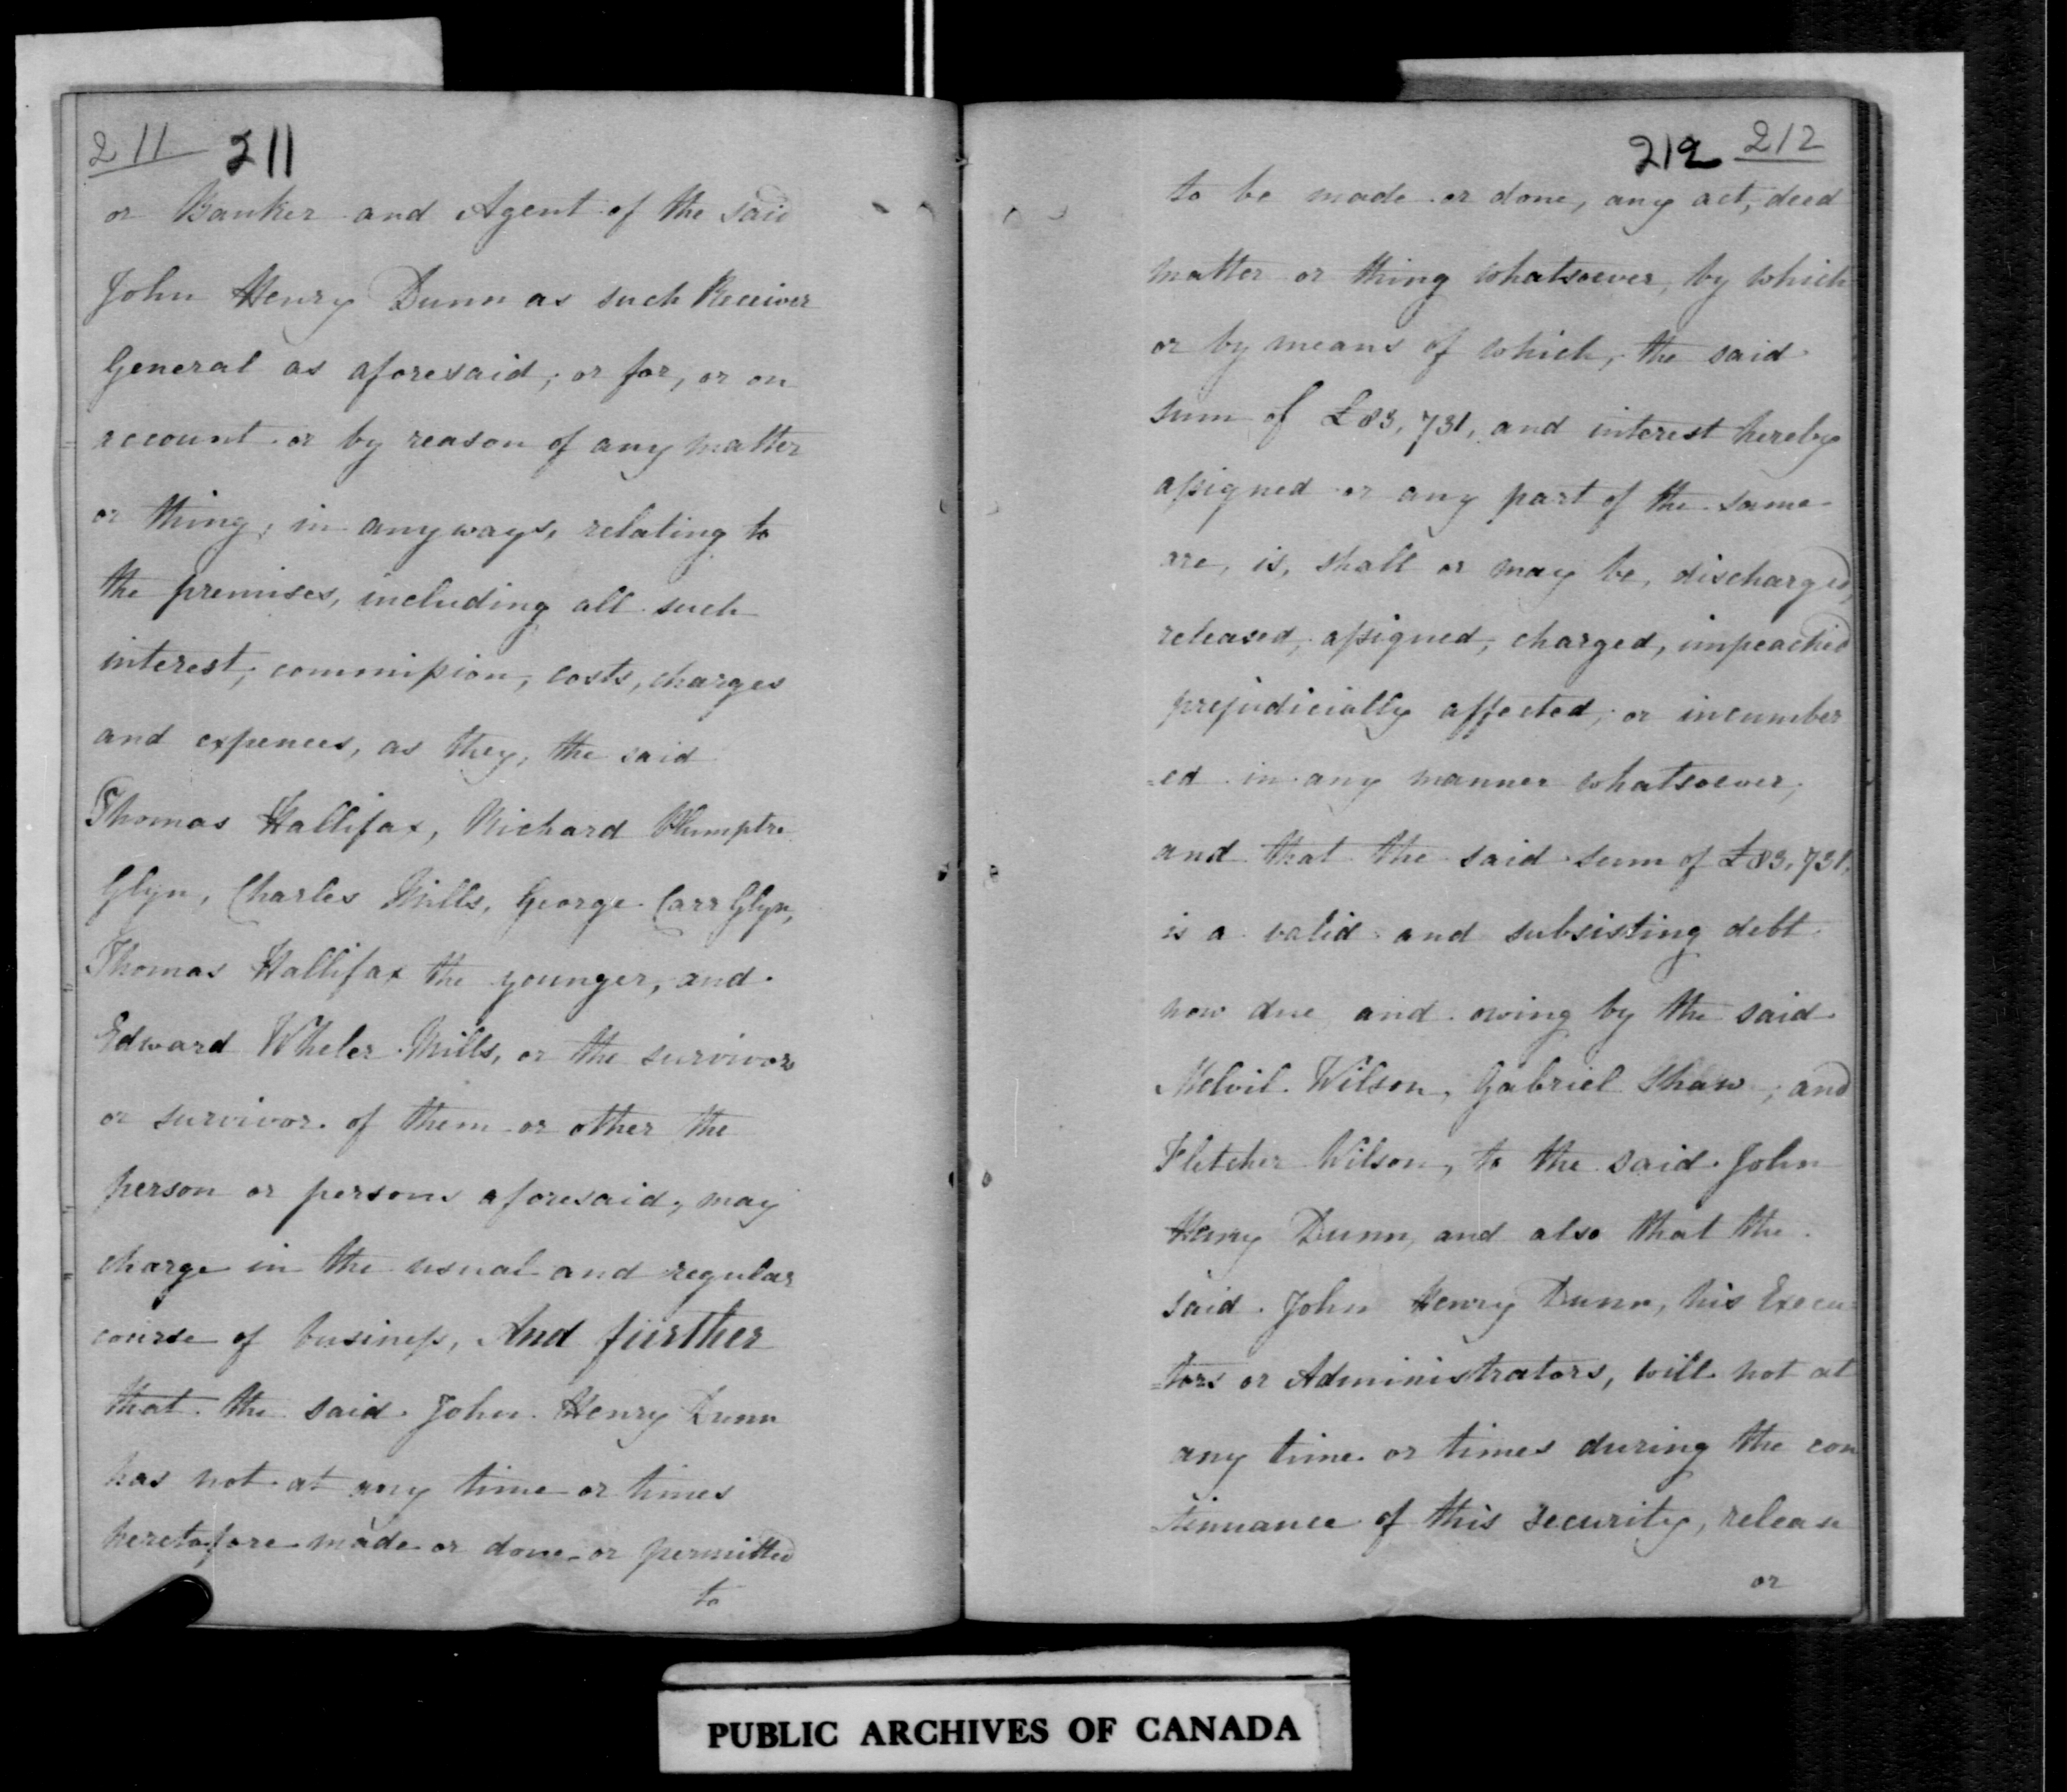 211 211
or Banker and Agent of the said
John Henry Dunn as such Receiver
General as aforesaid, or for, or on
account or by reason of any matter
or thing, in anyways, relating to
the premises, including all such
interest, commission, costs, charges
and expences, as they, the said
Thomas Hallifax, Richard Plumptre
Glyn, Charles Mills, George Carr Glyn,
Thomas Hallifax the younger, and
Edward Wheler Mills, or the survivors
or survivor of them or other the
person or persons aforesaid, may
charge in the usual and regular
course of business, And further
that the said John Henry Dunn
has not at any time or times
heretofore made or done or permitted
to
212 212
to be made or done, any act, deed
matter or thing whatsoever, by which
or by means of which, the said
sum of £83,731, and interest hereby
assigned or any part of the same
are, is, shall or may be, discharged,
released, assigned, charged, impeached
prejudicially affected, or incumber
=ed in any manner whatsoever,
and that the said sum of £83,731,
is a valid and subsisting debt
now due and owing by the said
Melvil Wilson, Gabriel Shaw, and
Fletcher Wilson, to the said John
Henry Dunn, and also that the
said John Henry Dunn, his Execu=
=tors or Administrators, will not at
any time or times during the con
=tinuance of this security, release
or
PUBLIC ARCHIVES OF CANADA